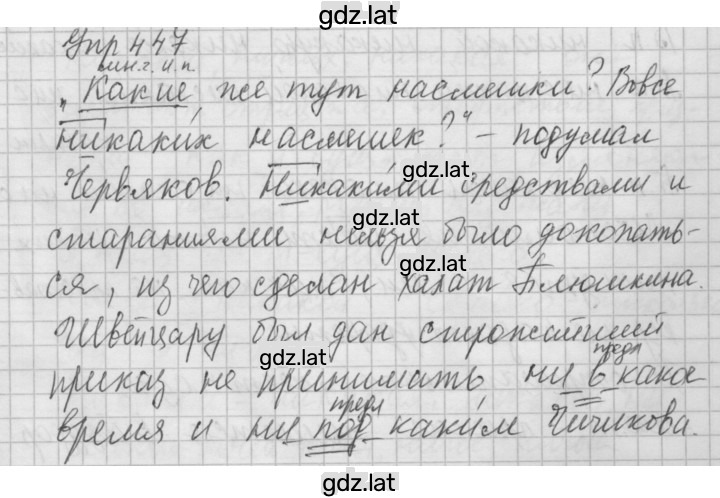 gdz.lat
Упр 447
мн.ч. и.п.
„Какие же тут насмешки? Вовсе
никаких насмешек?" – подумал
gdz.lat
Червяков. Никакими средствами и
gdz.lat
стараниями нельзя было докопать-
gdz.lat
ся, из чего сделан халат Плюшкина.
Швейцару был дан строжайший
gdz.lat
предл
приказ не принимать ни в какое
предл
время и ни под каким Чичикова.
gdz.lat